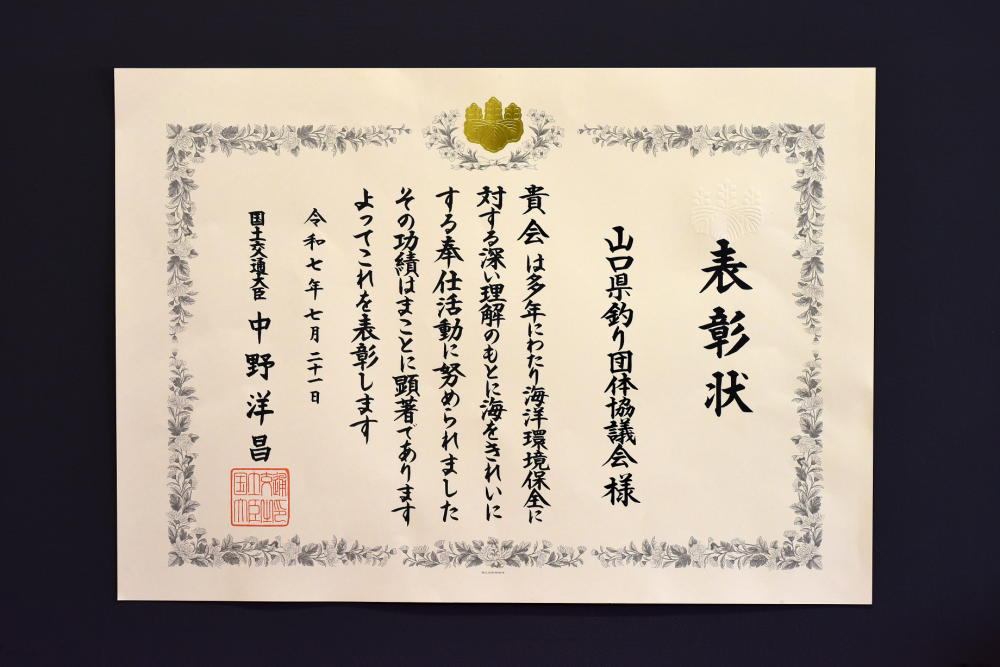 表彰状
山口県釣り団体協議会様
貴会は多年にわたり海洋環境保全に
対する深い理解のもとに海をきれいに
する奉仕活動に努められました
その功績はまことに顕著であります
よってこれを表彰します
令和七年七月二十一日
国土交通大臣 中野洋昌